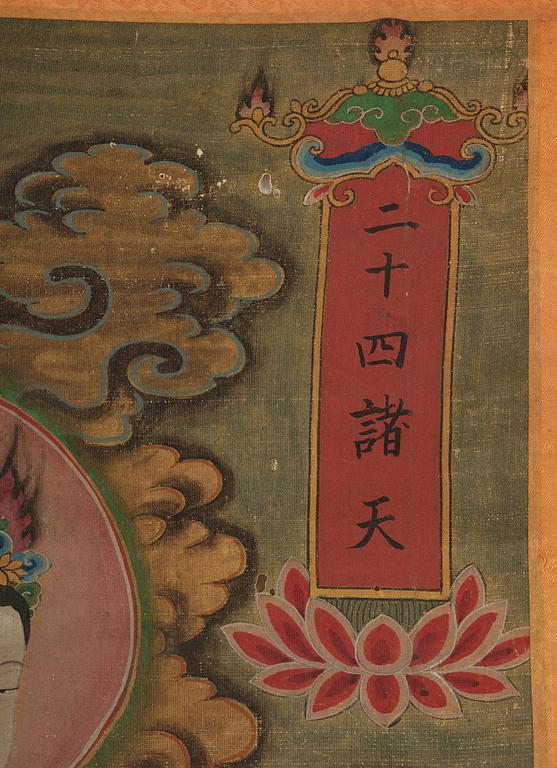 二十四諸天